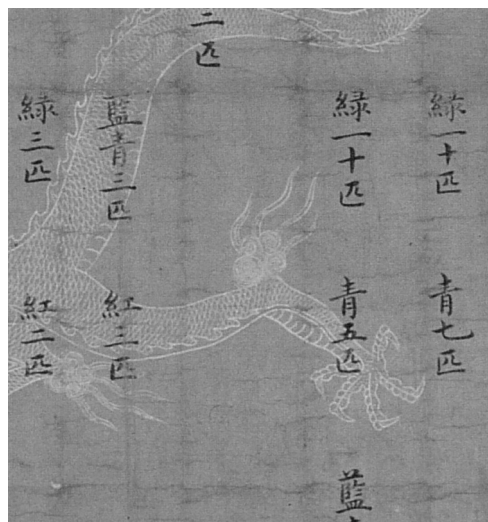 緑一十匹
青七匹
緑一十匹
青五匹
藍
二匹
藍青三匹
紅三匹
緑三匹
紅二匹